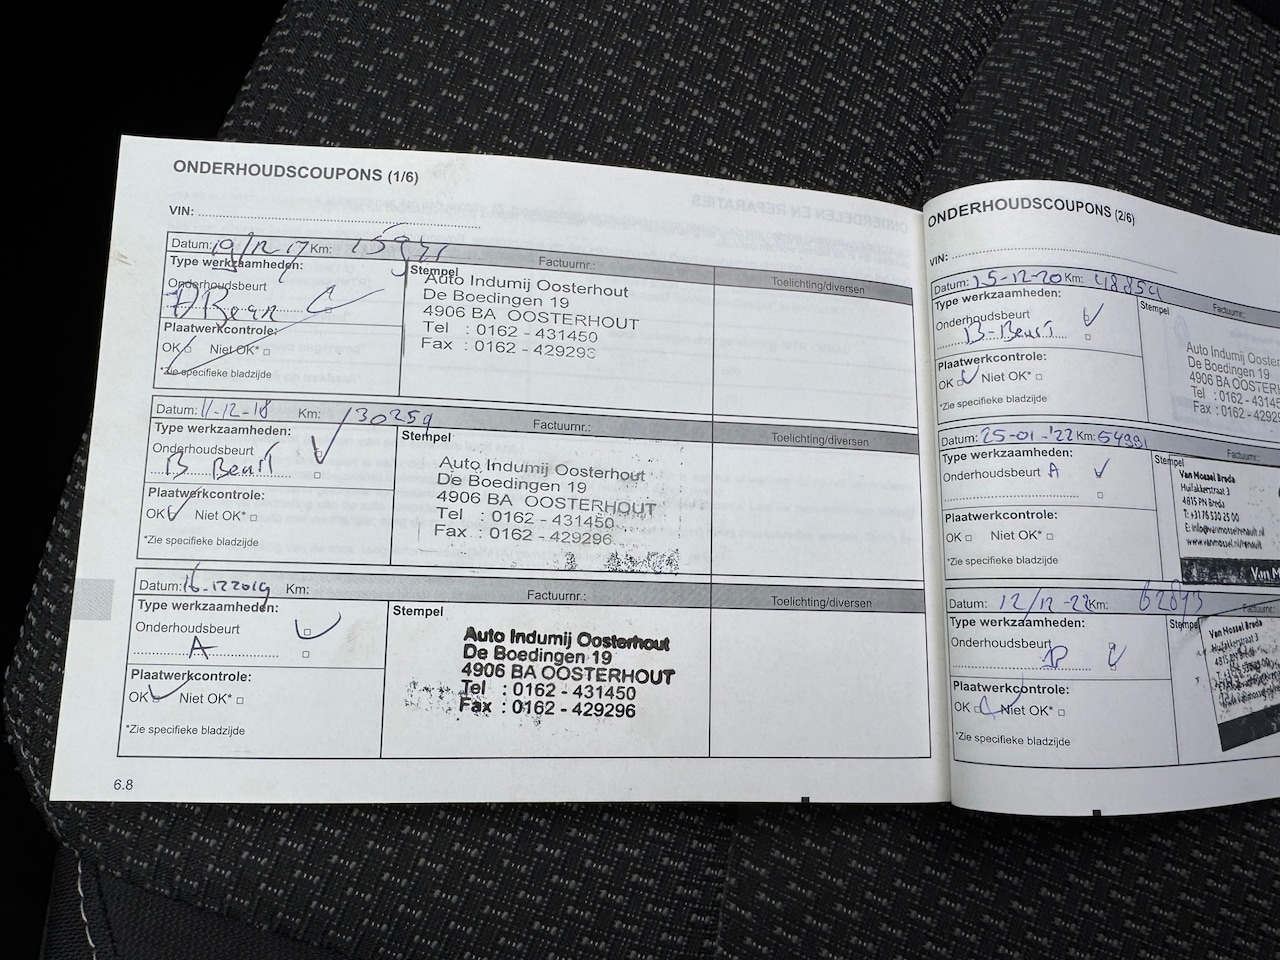 ONDERHOUDSCOUPONS (1/6)
VIN:
Datum: 19/12 17 Km:
Factuurnr.:
Toelichting/diversen
Type werkzaamheden:
Onderhoudsbeurt
Plaatwerkcontrole:
OK □ Niet OK* □
*Zie specifieke bladzijde
Stempel
Auto Indumij Oosterhout
De Boedingen 19
4906 BA OOSTERHOUT
Tel : 0162 - 431450
Fax : 0162 - 429296
Datum: 11-12-18 Km: 30259
Factuurnr.:
Toelichting/diversen
Type werkzaamheden:
Onderhoudsbeurt
B Beurt
Plaatwerkcontrole:
OK Niet OK* □
*Zie specifieke bladzijde
Stempel
Auto Indumij Oosterhout
De Boedingen 19
4906 BA OOSTERHOUT
Tel : 0162 - 431450
Fax : 0162 - 429296
Datum: 16-12 2019 Km:
Factuurnr.:
Toelichting/diversen
Type werkzaamheden:
Onderhoudsbeurt □
A □
Plaatwerkcontrole:
OK □ Niet OK* □
*Zie specifieke bladzijde
Stempel
Auto Indumij Oosterhout
De Boedingen 19
4906 BA OOSTERHOUT
Tel : 0162 - 431450
Fax : 0162 - 429296
6.8
ONDERHOUDSCOUPONS (2/6)
VIN:
Datum: 15-12-20 Km: 48859
Factuurnr.:
Type werkzaamheden:
Onderhoudsbeurt
B-Beurt □
Plaatwerkcontrole:
OK □ Niet OK* □
*Zie specifieke bladzijde
Stempel
Auto Indumij Ooster
De Boedingen 19
4906 BA OOSTER
Tel : 0162 - 4314
Fax : 0162 - 4292
Datum: 25-01-'22 Km: 54991
Factuurnr.:
Type werkzaamheden:
Onderhoudsbeurt A
□
Plaatwerkcontrole:
OK □ Niet OK* □
*Zie specifieke bladzijde
Stempel
Van Mossel Breda
Huifakkerstraat 3
4815 PN Breda
T: +31 76 530 25 00
E: info@vanmosselrenault.nl
www.vanmossel.nl/renault
Van M
Datum: 12/12 -22 Km: 62893
Factuurnr.:
Type werkzaamheden:
Onderhoudsbeurt
B
Plaatwerkcontrole:
OK □ Niet OK* □
*Zie specifieke bladzijde
Stempel
Van Mossel Breda
Huifakkerstraat 3